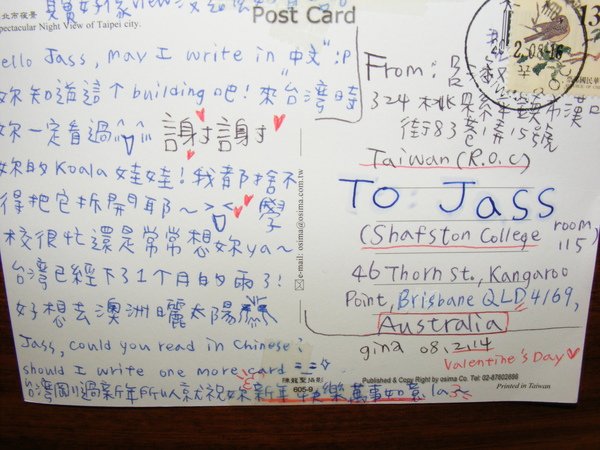 Post Card
北市夜景
pectacular Night View of Taipei city.
ello Jass, may I write in 中文":P
妳知道這個building吧! 來台灣時
妳一定看過^^ 謝謝
妳的Koala娃娃! 我都捨不
得把它拆開耶~>< 學
校很忙還是常常想妳ya~
台灣已經下了1個月的雨了!
好想去澳洲曬太陽
Jass, could you read in Chinese?
should I write one more card
台灣剛過新年所以就祝妳新年快樂萬事如意la
e-mail: osima@osima.com.tw
陳龍聖攝影
605-9
2.08.16
From: 呂淑
324桃園縣平鎮市漢口
街83巷 15號
Taiwan (R.O.C)
To Jass
(Shafston College room
115)
46 Thorn St., Kangaroo
Point, Brisbane QLD 4169,
Australia
gina 08.2.14
Valentine's Day
Published & Copy Right by osima Co. Tel: 02-87602686
Printed in Taiwan